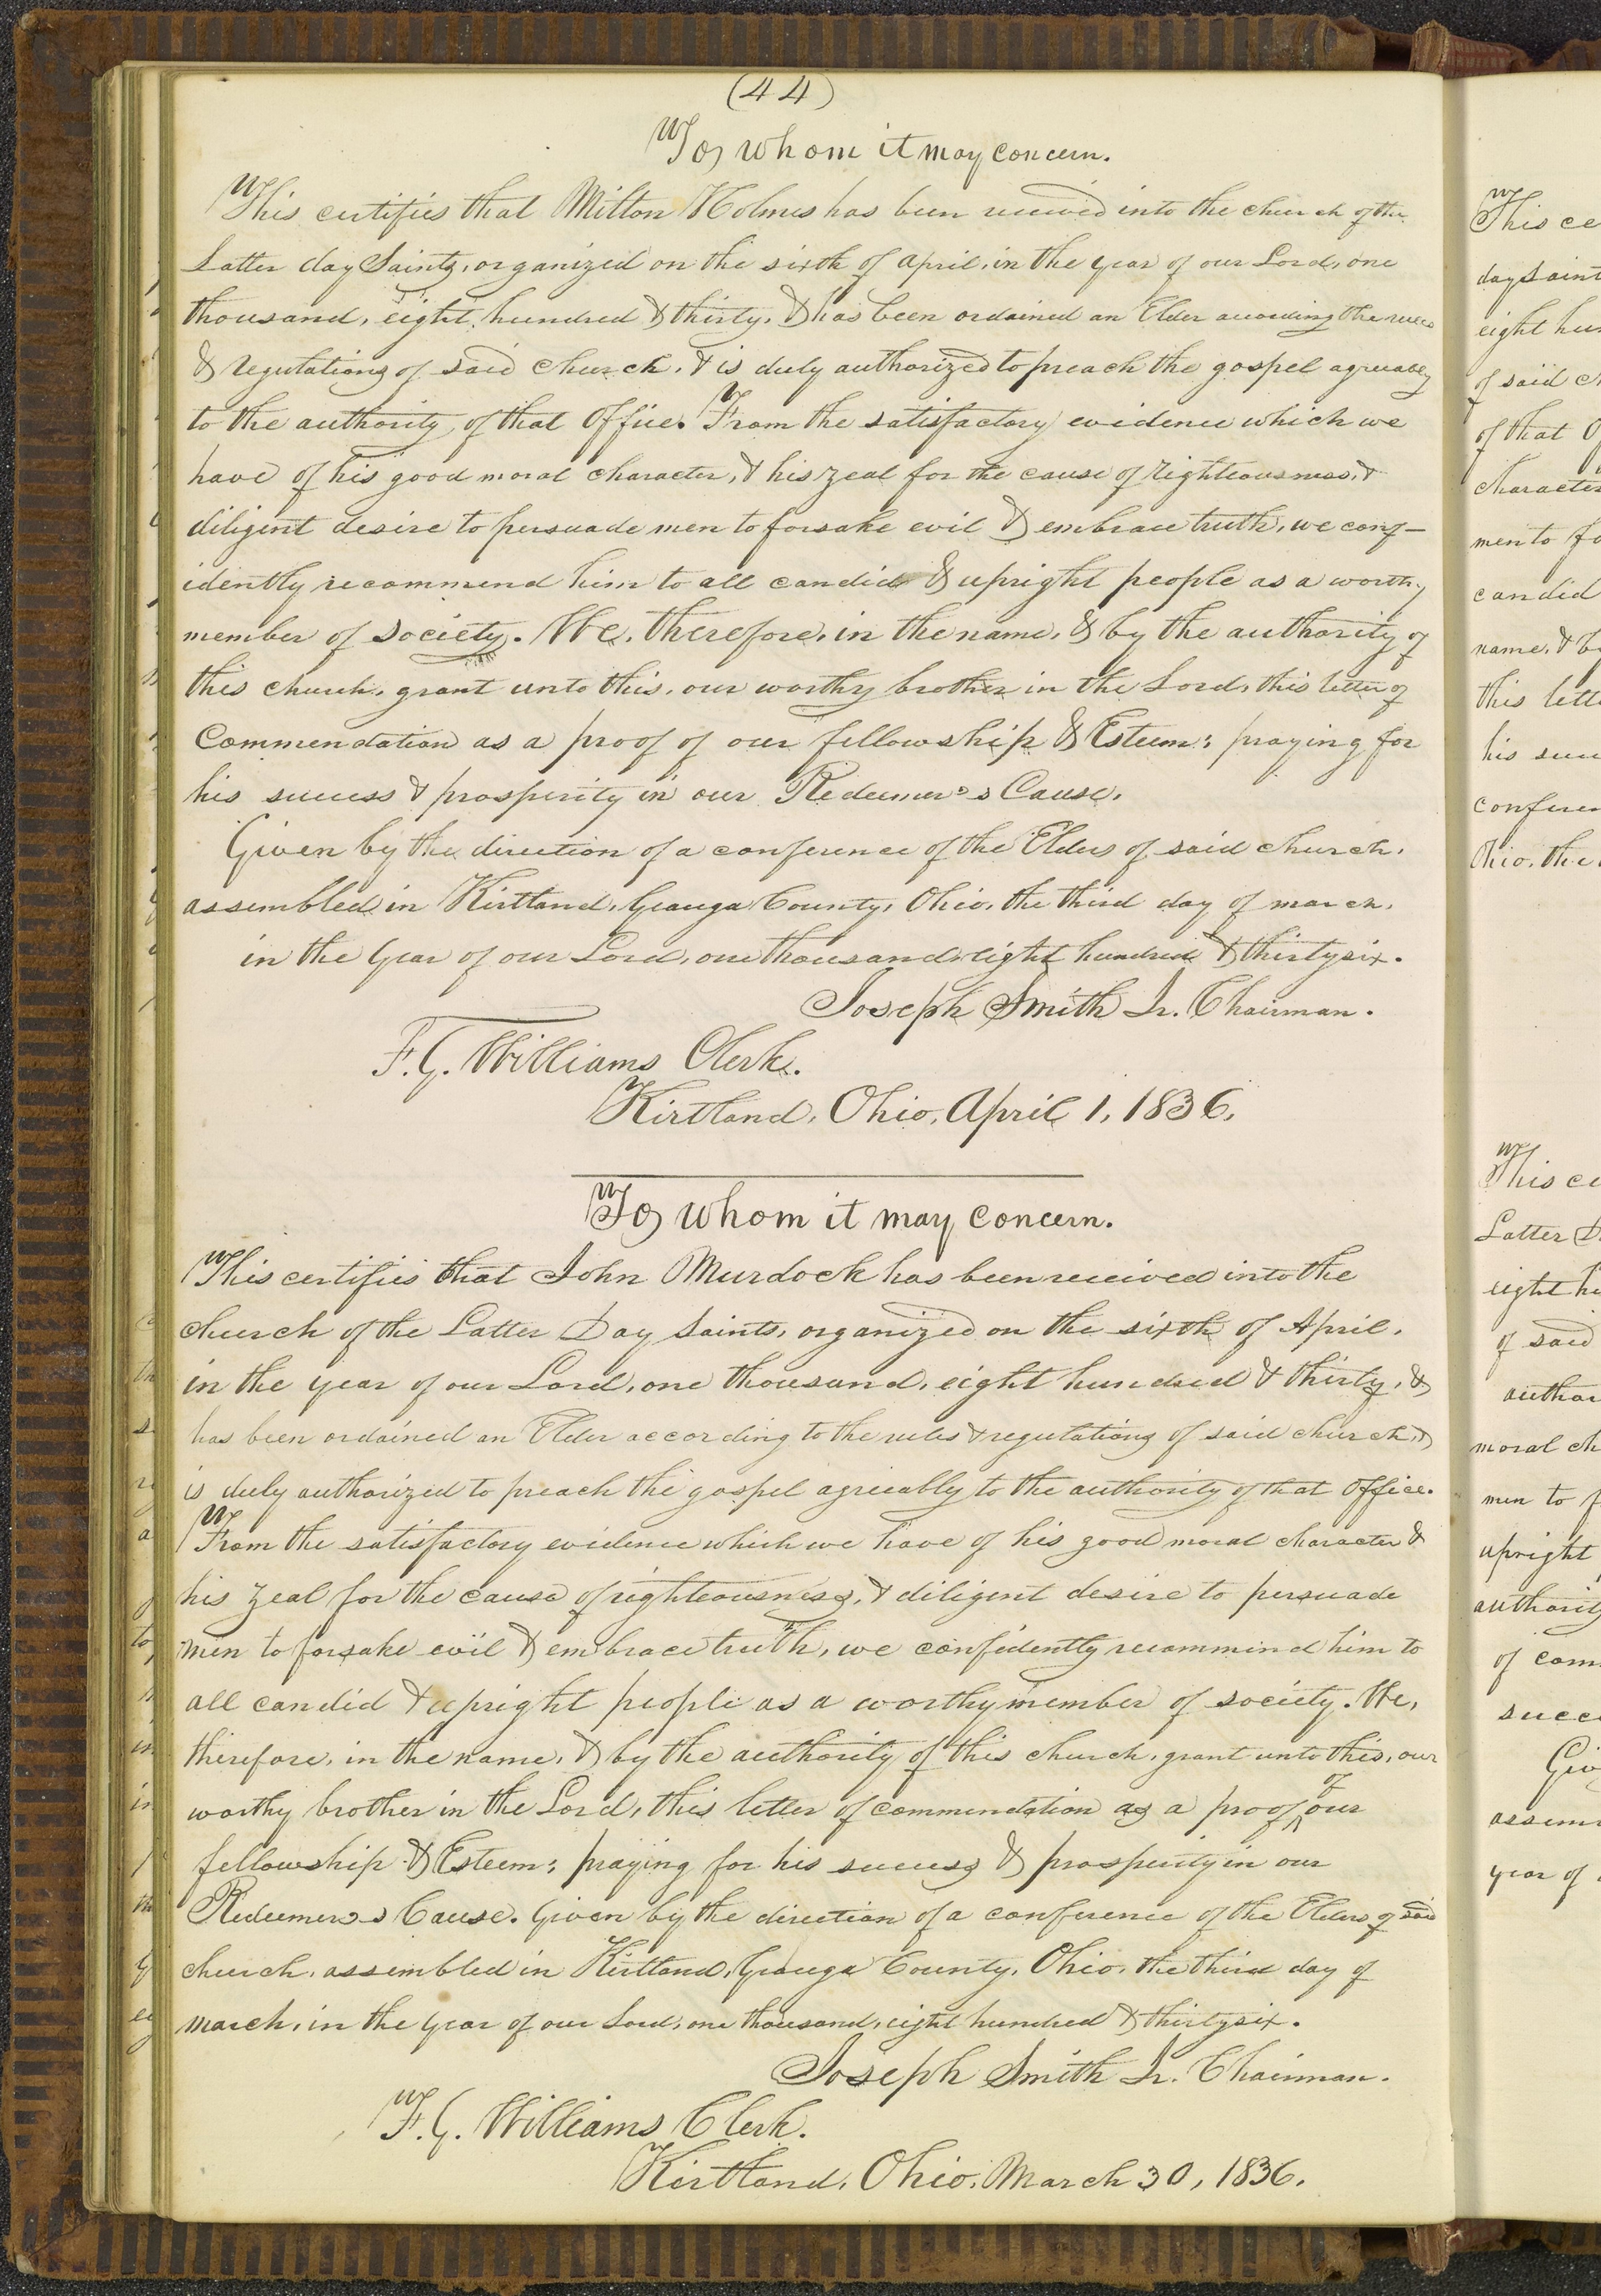 (44)
To whom it may concern.
This certifies that Milton Holmes has been received into the church of the
Latter day Saints, organized on the sixth of april, in the year of our Lord, one
thousand, eight, hundred & thirty, & has been ordained an Elder according the rules
& regulations of said church, & is duly authorized to preach the gospel agreeably
to the authority of that Office. From the satisfactory evidence which we
have of his good moral character, & his zeal for the cause of righteousness, &
diligent desire to persuade men to forsake evil & embrace truth, we conf–
idently recommend him to all candid & upright people as a worthy
member of society. We, therefore, in the name, & by the authority of
this church, grant unto this, our worthy brother in the Lord, this letter of
Commendation as a proof of our fellowship & Esteem: praying for
his success & prosperity in our Redeemer's Cause.
Given by the direction of a conference of the Elders of said church,
assembled in Kirtland, Geauga County, Ohio, the third day of march,
in the year of our Lord, one thousand eight hundred & thirty six.
Joseph Smith Jr. Chairman.
F. G. Williams Clerk.
Kirtland, Ohio, April 1, 1836.
To whom it may concern.
This certifies that John Murdock has been received into the
church of the Latter Day Saints, organized on the sixth of April,
in the year of our Lord, one thousand, eight hundred & thirty, &
has been ordained an Elder according to the rules & regulations of said church, &
is duly authorized to preach the gospel agreeably to the authority of that Office.
From the satisfactory evidence which we have of his good moral character &
his zeal for the cause of righteousness, & diligent desire to persuade
men to forsake evil & embrace truth, we confidently recommend him to
all candid & upright people as a worthy member of society. We,
therefore, in the name, & by the authority of this church, grant unto this, our
worthy brother in the Lord, this letter of commendation as a proof of our
fellowship & Esteem: praying for his success & prosperity in our
Redeemer's Cause. Given by the direction of a conference of the Elders of said
church, assembled in Kirtland, Geauga County, Ohio, the third day of
march, in the year of our Lord, one thousand, eight hundred & thirty six.
Joseph Smith Jr. Chairman.
F. G. Williams Clerk.
Kirtland, Ohio, March 30, 1836.
This ce
day Saint
eight hun
of said ch
of that O
character
men to fo
candid
name, & by
this lett
his succ
conferen
Ohio, the
This ce
Latter D
eight hu
of said
author
moral ch
men to f
upright
authority
of com
succe
Giv
assem
year of